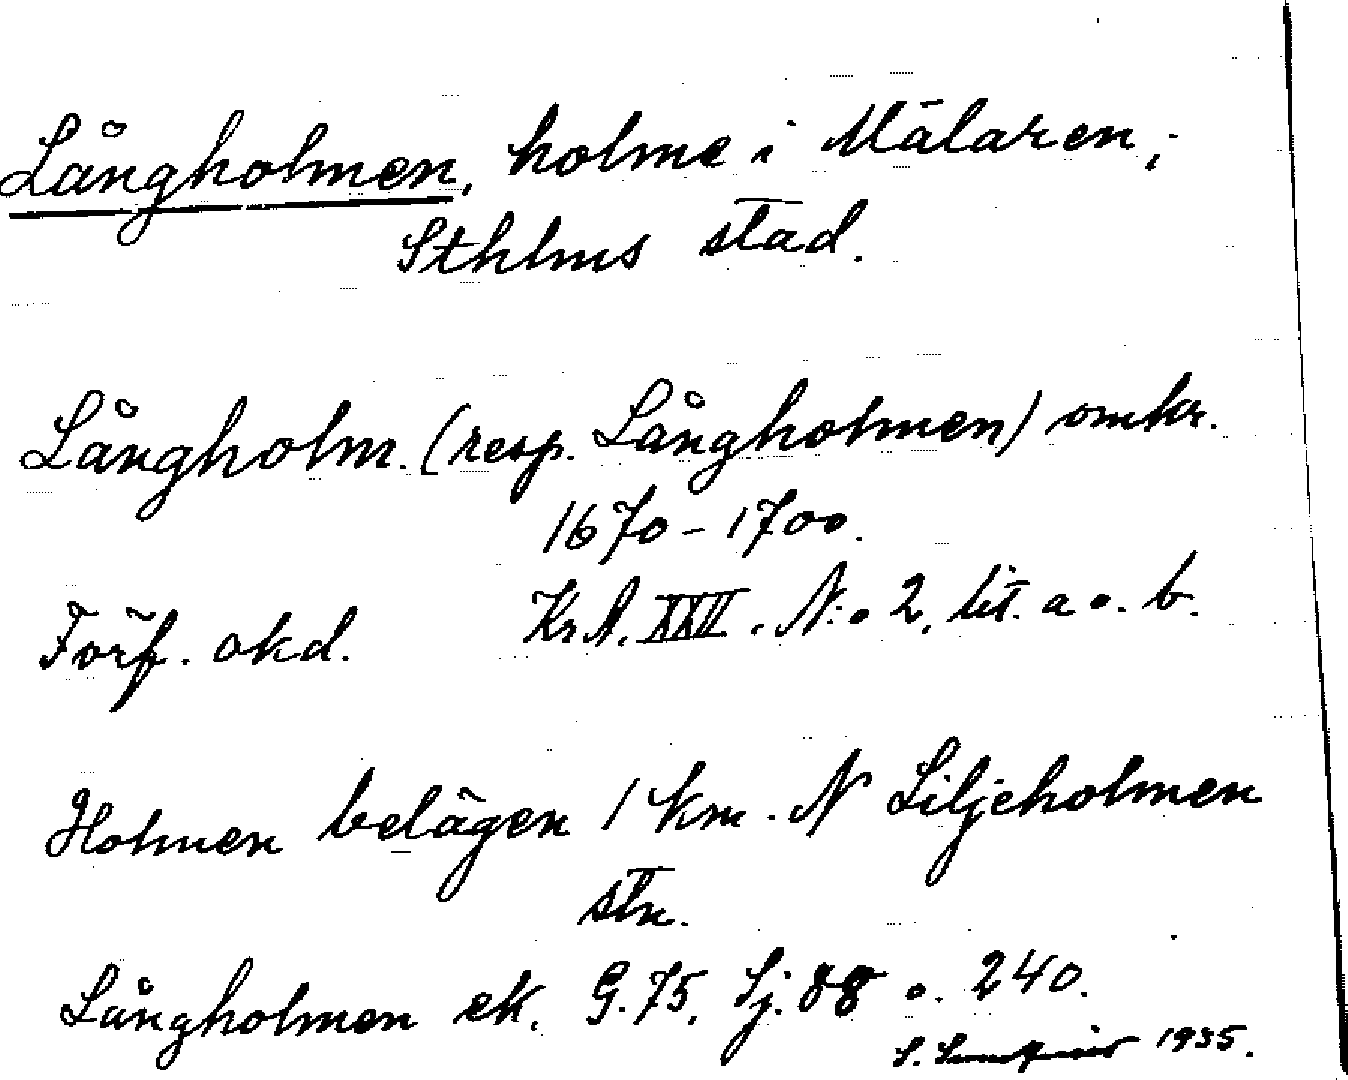 Långholmen, holme i Mälaren,
Sthlms stad.
Långholm. (resp. Långholmen) omkr.
1670-1700.
Förf. okd. KrA. XXII. N:o 2, lit. a o. b.
Holmen belägen 1 km. N Liljeholmen
stn.
Långholmen ek. G.75, Sj. 88 o. 240.
S. 1935.